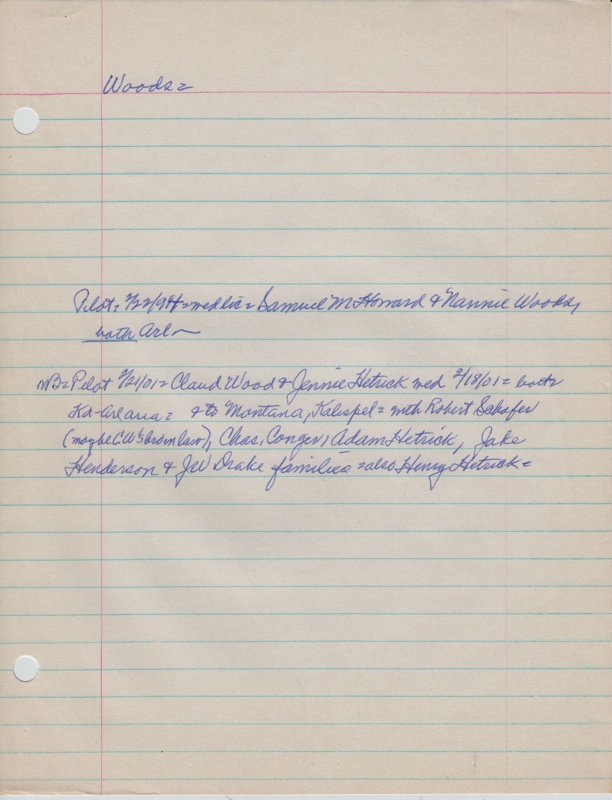 Woods=
Pilot= 2/22/94= med lic= Samuel M Howard & Nannie Woods,
both Arl~
NB= Pilot 2/21/01= Claud Wood & Jennie Hetrick med 2/18/01= both
Ka-Arl area= & to Montana, Kalispel= with Robert Schafer
(maybe CW's brom law), Chas, Conger, Adam Hetrick, Jake
Henderson & JW Drake families =also Henry Hetrick=